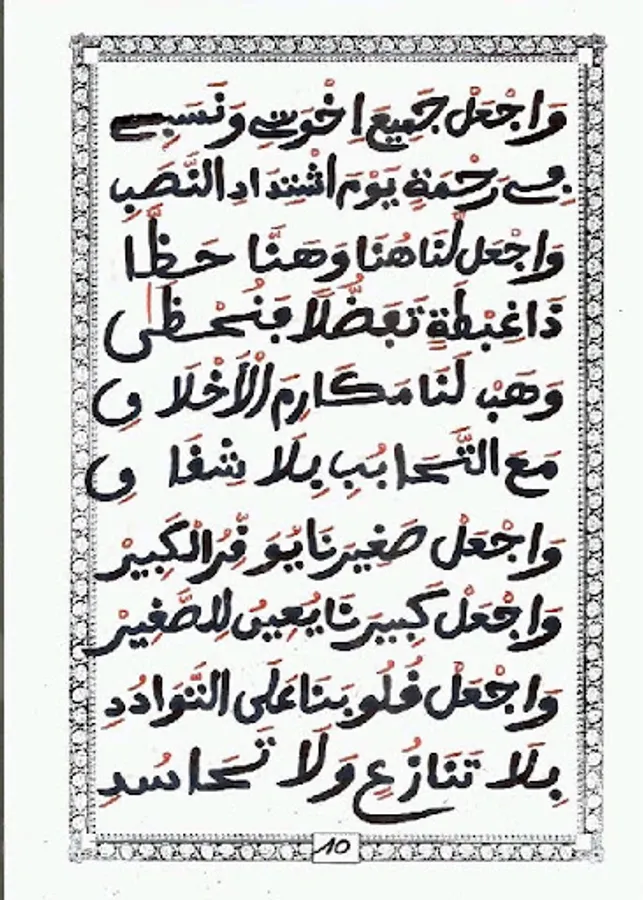 وَاجْعَلْ جَمِيعَ إِخْوَتِي وَنَسَبِي
فِي رَحْمَةٍ يَوْمَ اشْتِدَادِ النَّصَبِ
وَاجْعَلْ لَّنَا هُنَا وَهَنَّا حَظَّا
ذَا غِبْطَةٍ تَفَضُّلًا فَنُحْظَى
وَهَبْ لَنَا مَكَارِمَ الْأَخْلَاقِ
مَعَ التَّحَابُبِ بِلَا شِقَاقِ
وَاجْعَلْ صَغِيرَنَا يُوَقِّرُ الْكَبِيرْ
وَاجْعَلْ كَبِيرَنَا يُعِينُ لِلصَّغِيرْ
وَاجْعَلْ قُلُوبَنَا عَلَى التَّوَادُدِ
بِلَا تَنَازُعٍ وَلَا تَحَاسُدِ
10